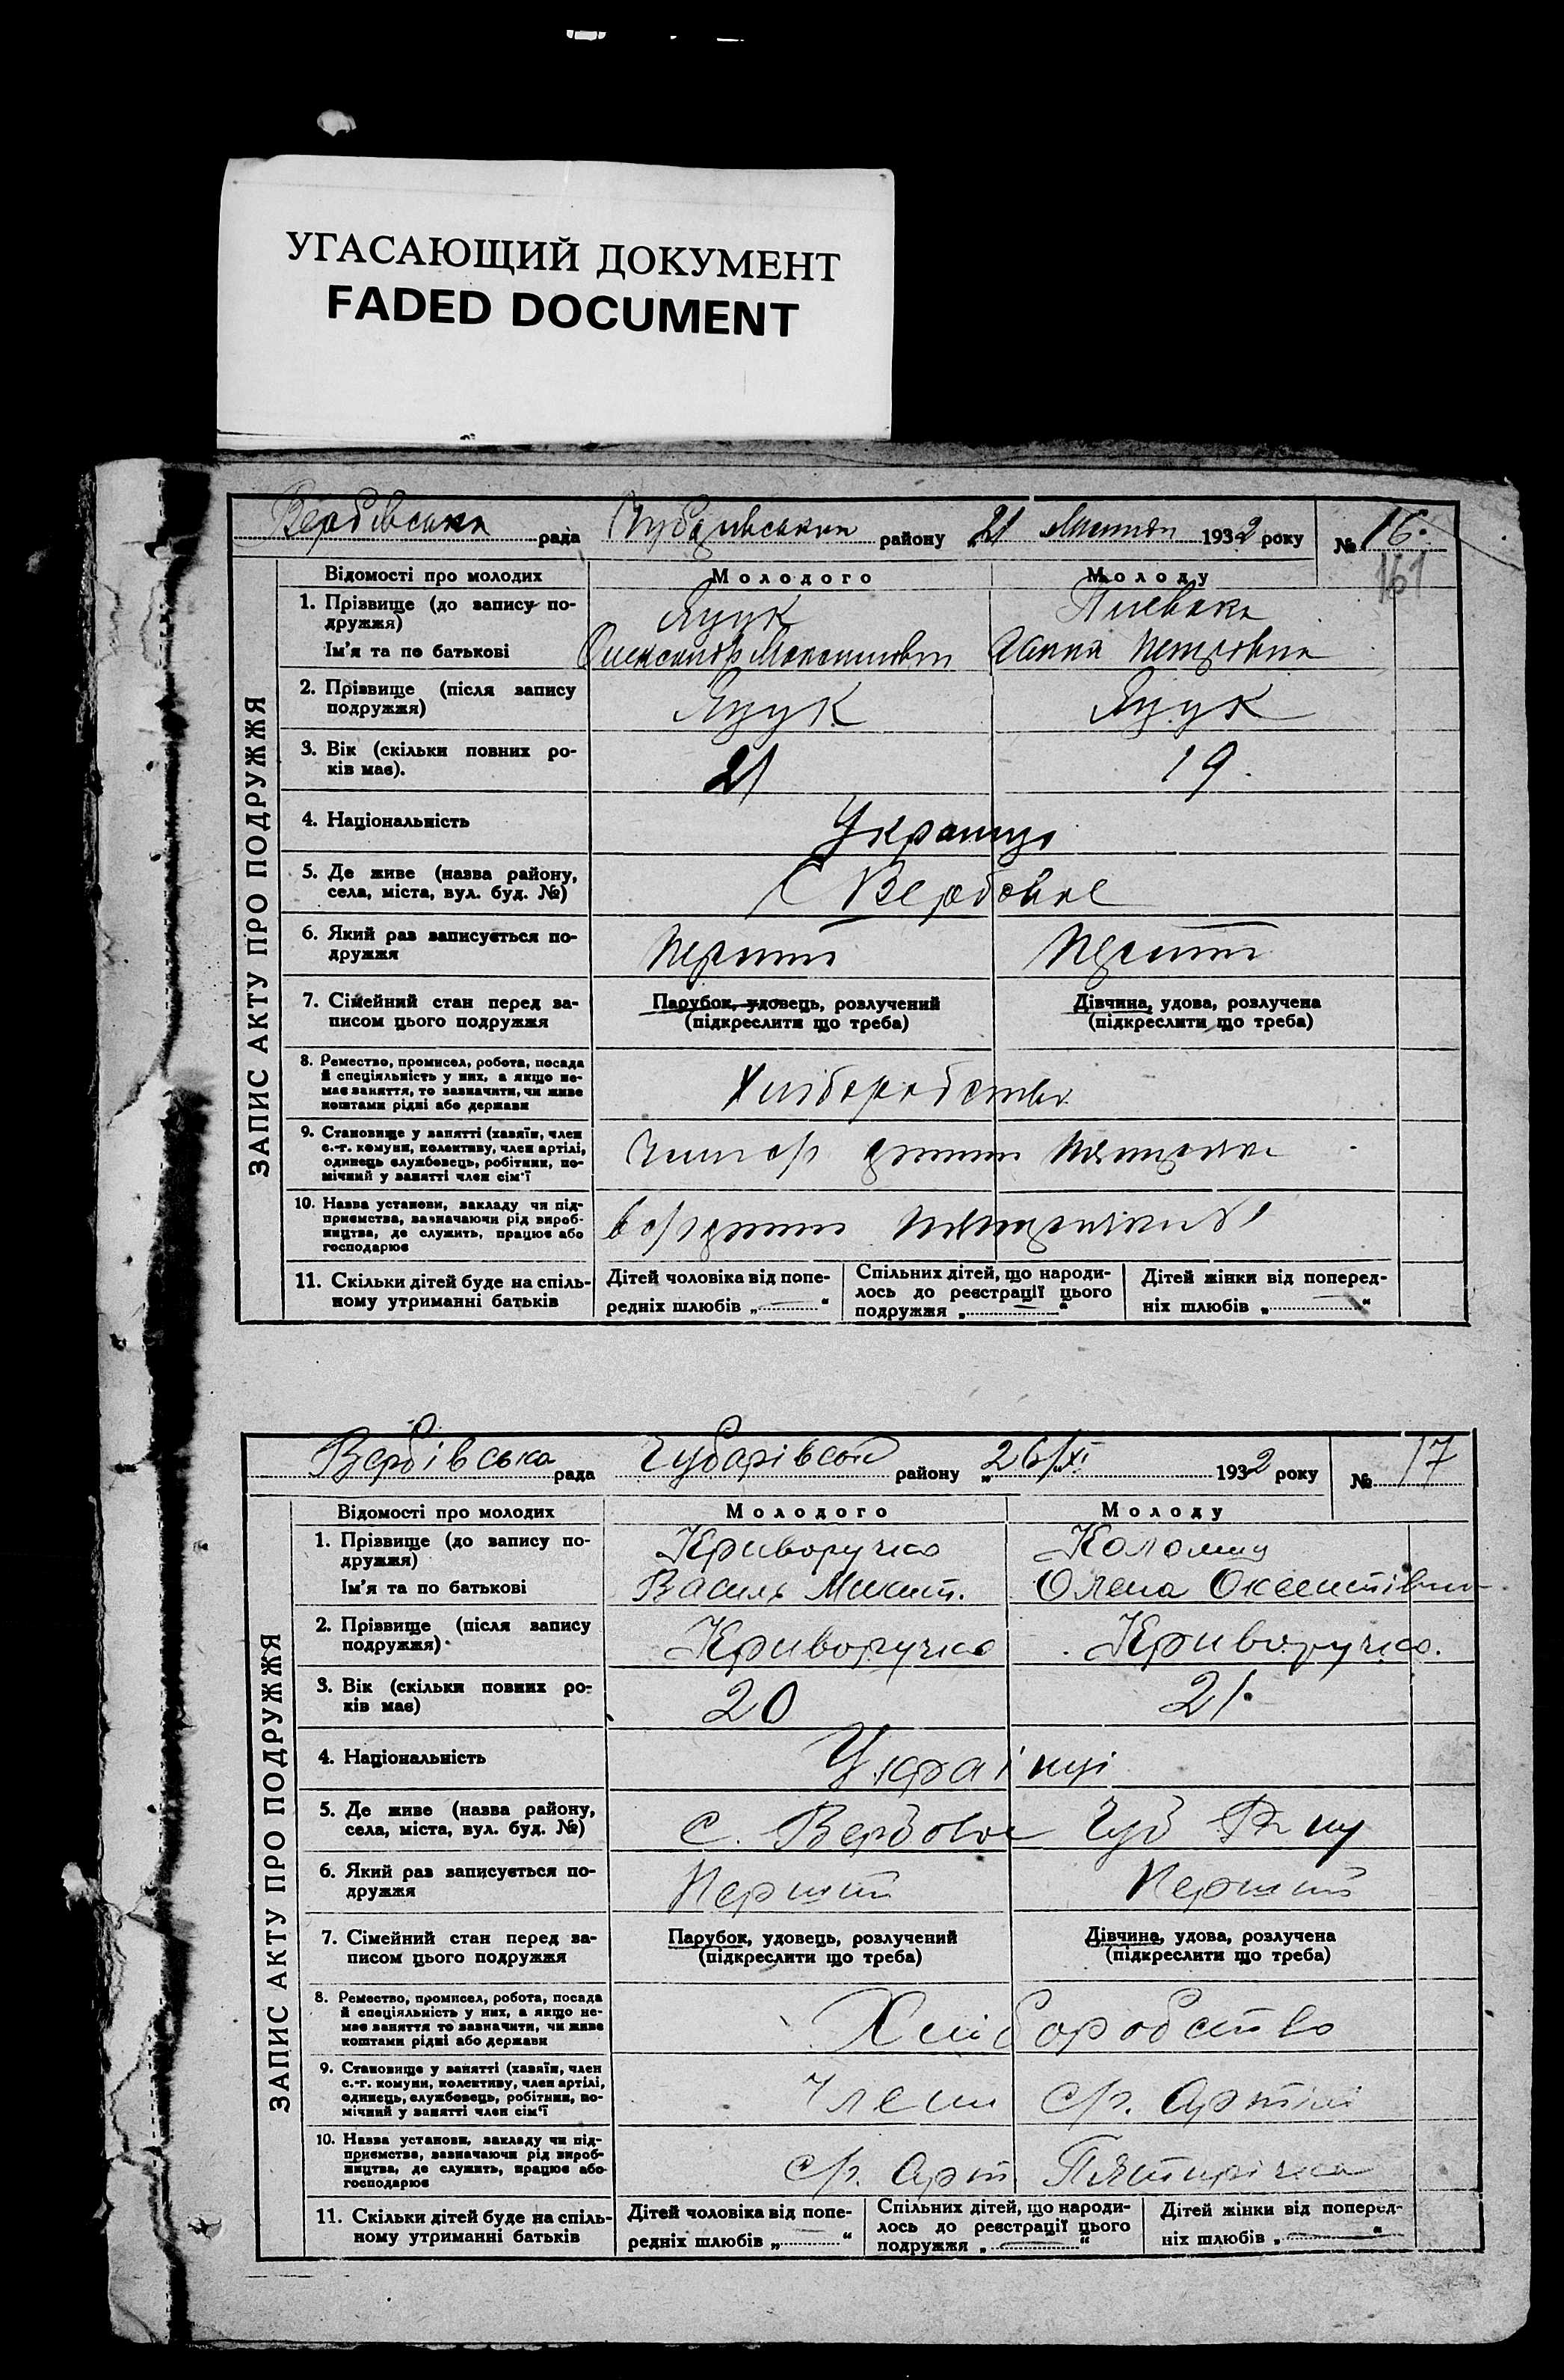 УГАСАЮЩИЙ ДОКУМЕНТ
FADED DOCUMENT
Вербівська рада Чубарівський району 21 Листопад 1932 року № 16.
161
ЗАПИС АКТУ ПРО ПОДРУЖЖЯ
Відомості про молодих Молодого Молоду
1. Прізвище (до запису по-
дружжя)
Яцук
Ім'я та по батькові Олександр Максимович Ганна Петровна
2. Прізвище (після запису
подружжя) Яцук Яцук
3. Вік (скільки повних ро-
ків має). 21 19.
4. Національність Українці
5. Де живе (назва району,
села, міста, вул. буд. №) С Вербовое
6. Який раз записується по-
дружжя Перший Перший
7. Сімейний стан перед за-
писом цього подружжя
Парубок, удовець, розлучений
(підкреслити що треба)
Дівчина, удова, розлучена
(підкреслити що треба)
8. Ремество, промисел, робота, посада
й спеціяльність у них, а якщо не-
має заняття, то зазначити, чи живе
коштами рідні або держави
Хліборобство
9. Становище у занятті (хазяїн, член
с.-г. комуни, колективу, член артілі,
одинець службовець, робітник, по-
мічний у занятті член сім'ї
10. Назва установи, закладу чи під-
приємства, зазначаючи рід вироб-
ництва, де служить, працює або
господарює
11. Скільки дітей буде на спіль-
ному утриманні батьків
Дітей чоловіка від попе-
редніх шлюбів „ — “
Спільних дітей, що народи-
лось до реєстрації цього
подружжя „ — “
Дітей жінки від поперед-
ніх шлюбів „ — “
Вербівська рада Чубарівськ району „26/XI 1932 року № 17
ЗАПИС АКТУ ПРО ПОДРУЖЖЯ
Відомості про молодих Молодого Молоду
1. Прізвище (до запису по-
дружжя)
Криворучко Коломиц
Ім'я та по батькові Василь Микит. Олена Оксентівна
2. Прізвище (після запису
подружжя) Криворучко Криворучко.
3. Вік (скільки повних ро-
ків має) 20 21.
4. Національність Українці
5. Де живе (назва району,
села, міста, вул. буд. №) с. Вербовое Чуб Р-ну
6. Який раз записується по-
дружжя Перший Перший
7. Сімейний стан перед за-
писом цього подружжя
Парубок, удовець, розлучений
(підкреслити що треба)
Дівчина, удова, розлучена
(підкреслити що треба)
8. Ремество, промисел, робота, посада
й спеціяльність у них, а якщо не-
має заняття то зазначити, чи живе
коштами рідні або держави
Хліборобство
9. Становище у занятті (хазяїн, член
с.-г. комуни, колективу, член артілі,
одинець, службовець, робітник, по-
мічний у занятті член сім'ї
Член с/г. Артілі
10. Назва установи, закладу чи під-
приємства, зазначаючи рід вироб-
ництва, де служить, працює або
господарює
с/г. Арт Пятирічка
11. Скільки дітей буде на спіль-
ному утриманні батьків
Дітей чоловіка від попе-
редніх шлюбів „ “
Спільних дітей, що народи-
лось до реєстрації цього
подружжя „ — “
Дітей жінки від поперед-
ніх шлюбів „ — “